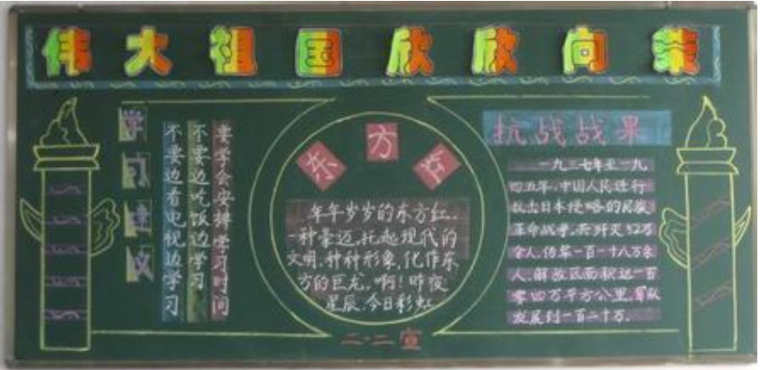 伟大祖国欣欣向荣
学习建议
要学会安排学习时间
不要边吃饭边学习
不要边看电视边学习
东方红
年年岁岁的东方红,
一种豪迈,托起现代的
文明,种种形象,化作东
方的巨龙,啊!昨夜
星辰,今日彩虹
抗战战果
一九三七年至一九
四五年,中国人民进行
抗击日本侵略的民族
革命战争,共歼灭52万
余人,伪军一百一十八万余
人,解放区面积达一百
零四万平方公里,军队
发展到一百二十万.
二·二宣